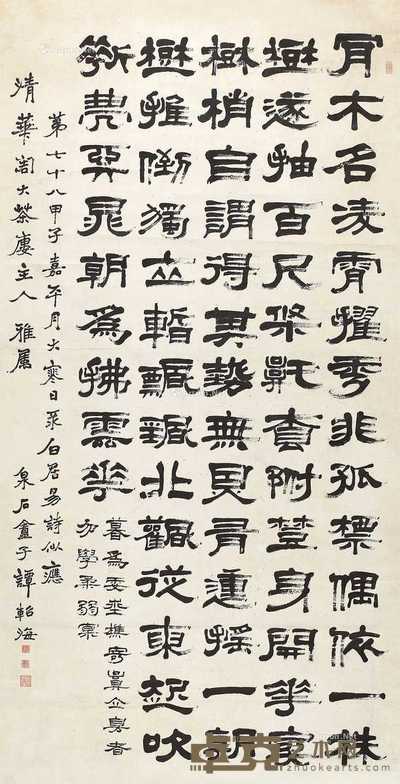 有木名凌霄擢秀非孤標偶依一株
樹遂抽百尺條託附身開花寄
樹梢自謂得其勢無因有運搖一
樹摧倒獨立暫飄颻北從東起吹
朝為拂雲花
暮為委樵寄言立身者
勿學柔弱
第七十八甲子嘉平月大寒日录白居易詩似應
清華閣大茶廔主人雅屬 泉石盦子譚海